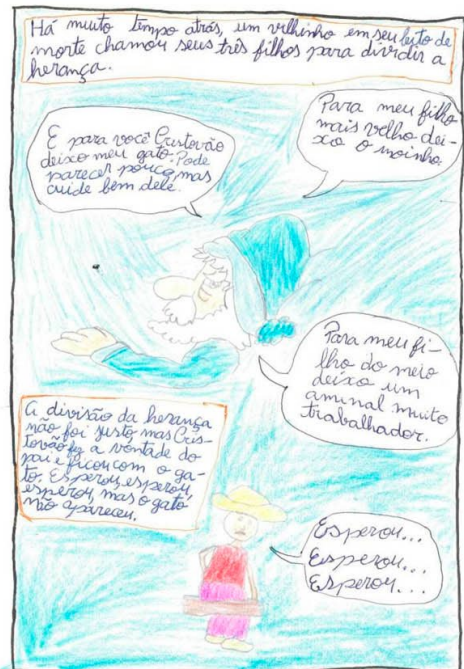 Há muito tempo atrás, um velhinho em seu leito de
morte chamou seus três filhos para dividir a
herança.
Para meu filho
mais velho dei-
xo o moinho.
E para você Cristovão
deixo meu gato. Pode
parecer pouco, mas
cuide bem dele.
Para meu fi-
lho do meio
deixo um
aminal muito
trabalhador.
A divisão da herança
não foi justo, mas Cris-
tovão fez a vontade do
pai e ficou com o ga-
to. Esperou, esperou,
esperou, mas o gato
não apareceu.
Esperou...
Esperou...
Esperou...